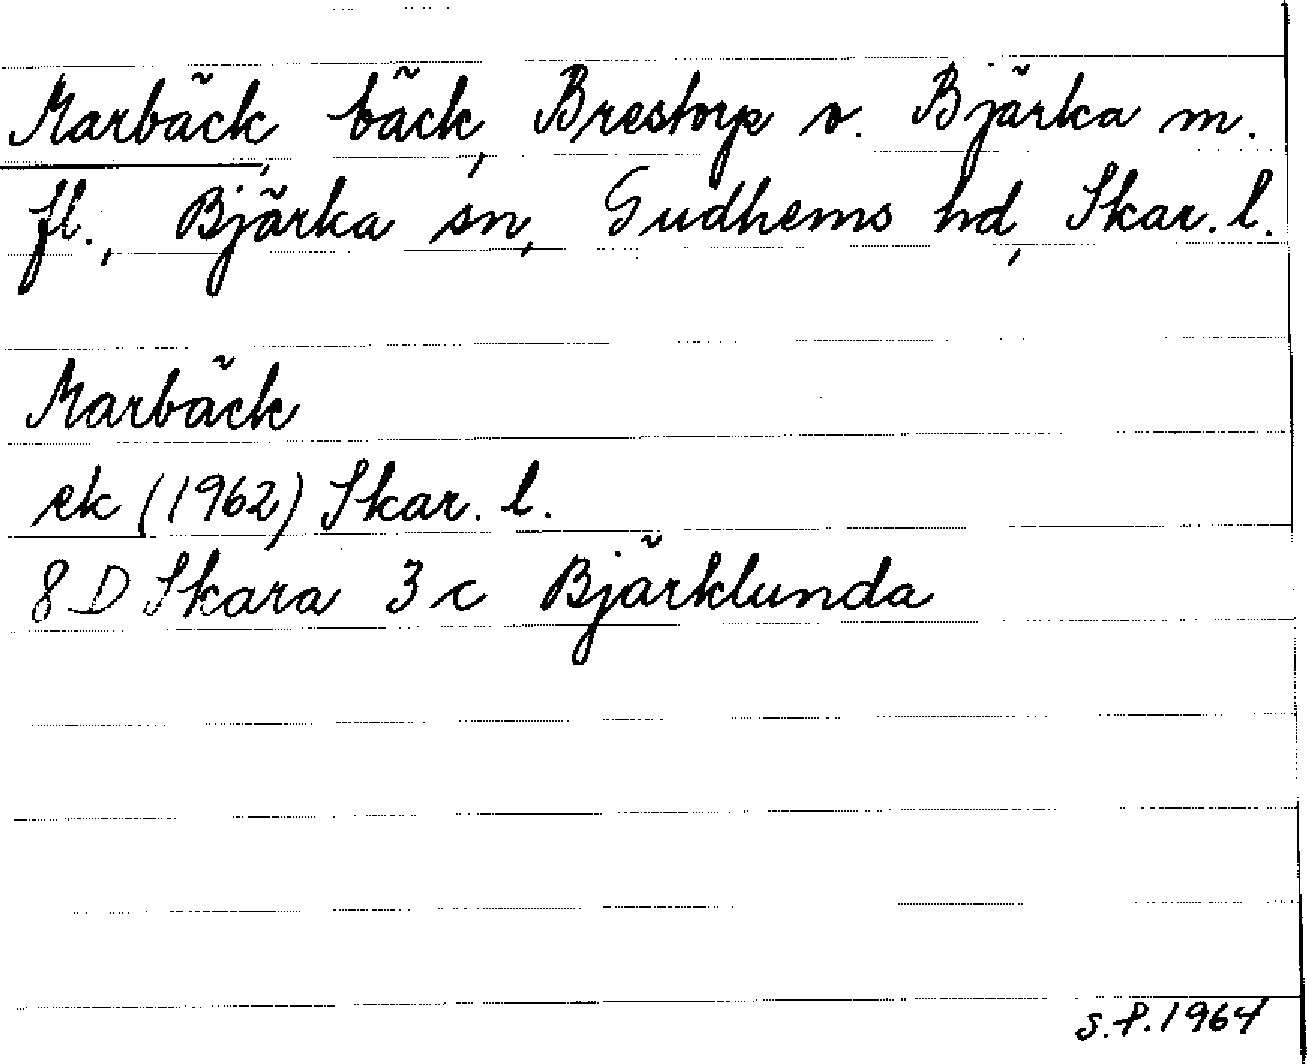 Marbäck, bäck, Brestorp o. Bjärka m.
fl., Bjärka sn, Gudhems hd, Skar. l.
Marbäck
ek (1962) Skar. l.
8 D Skara 3 c Bjärklunda
S.P. 1964